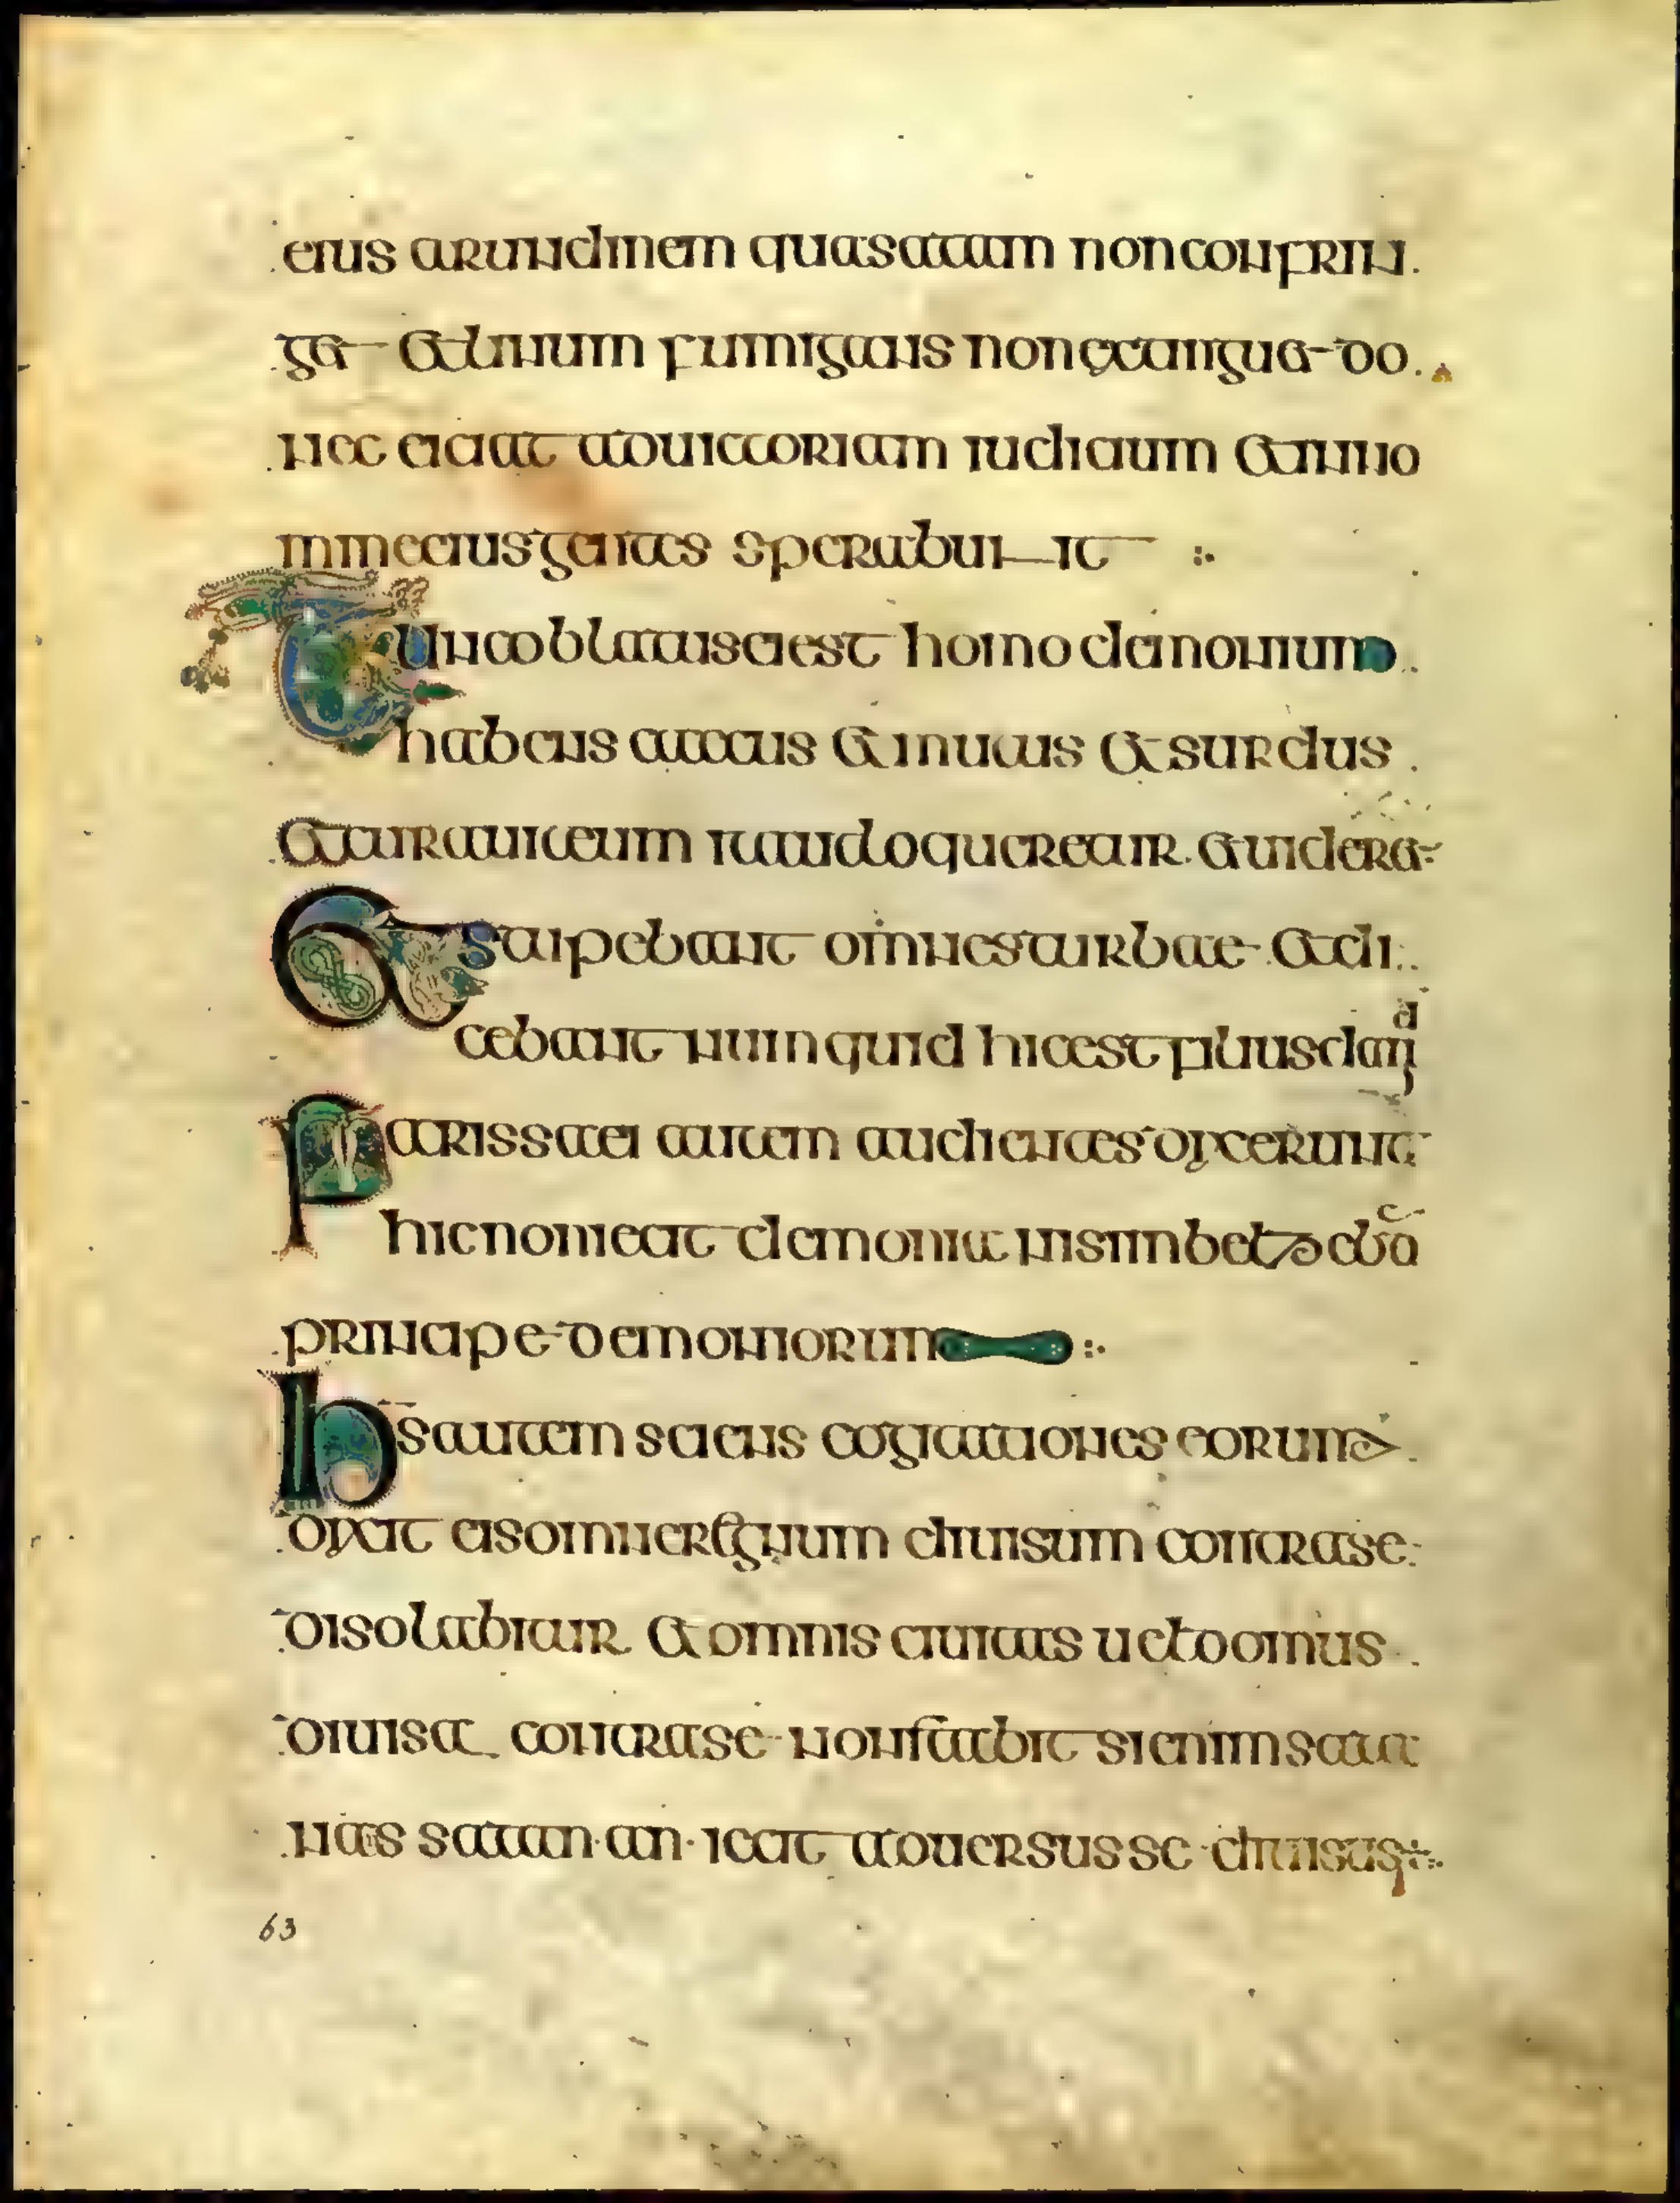 eius arundinem quasatam non confrin
get et linum fumigans non extinguet do
nec eiciat ad uictoriam iudicium et in no
mine eius gentes sperabunt
Tunc oblatus ei est homo demonium
habens caecus et mutus et surdus
et curauit eum ita ut loqueretur et uideret
Et stupebant omnes turbae et di
cebant numquid hic est filius daui
d
Farissaei autem audientes dixerunt
hic non iecit demonia nisi in belzebub
principe demoniorum
Ihs autem sciens cogitationes eorum
dixit eis omne regnum diuisum contra se
disolabitur et omnis ciuitas uel domus
diuisa contra se non stabit si enim sata
nas satanan iecit aduersus se diuisus
63